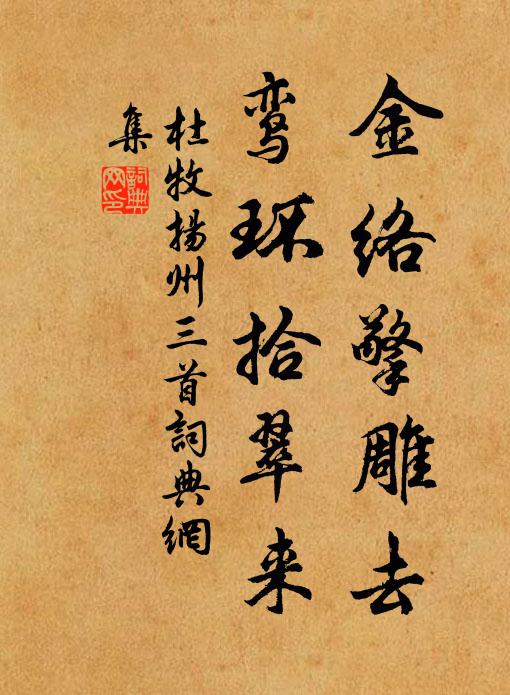 金络擎雕去
鸾环拾翠来
杜牧揚州三首詞典網
集
詞典網印